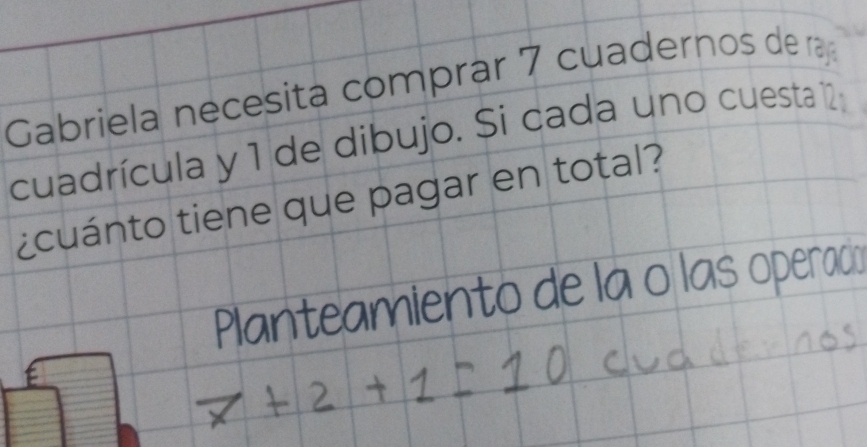 Gabriela necesita comprar 7 cuadernos de
cuadrícula y 1 de dibujo. Si cada uno cuesta
¿cuánto tiene que pagar en total?
Planteamiento de la o las
7 + 2 + 1 = 10 cuadernos